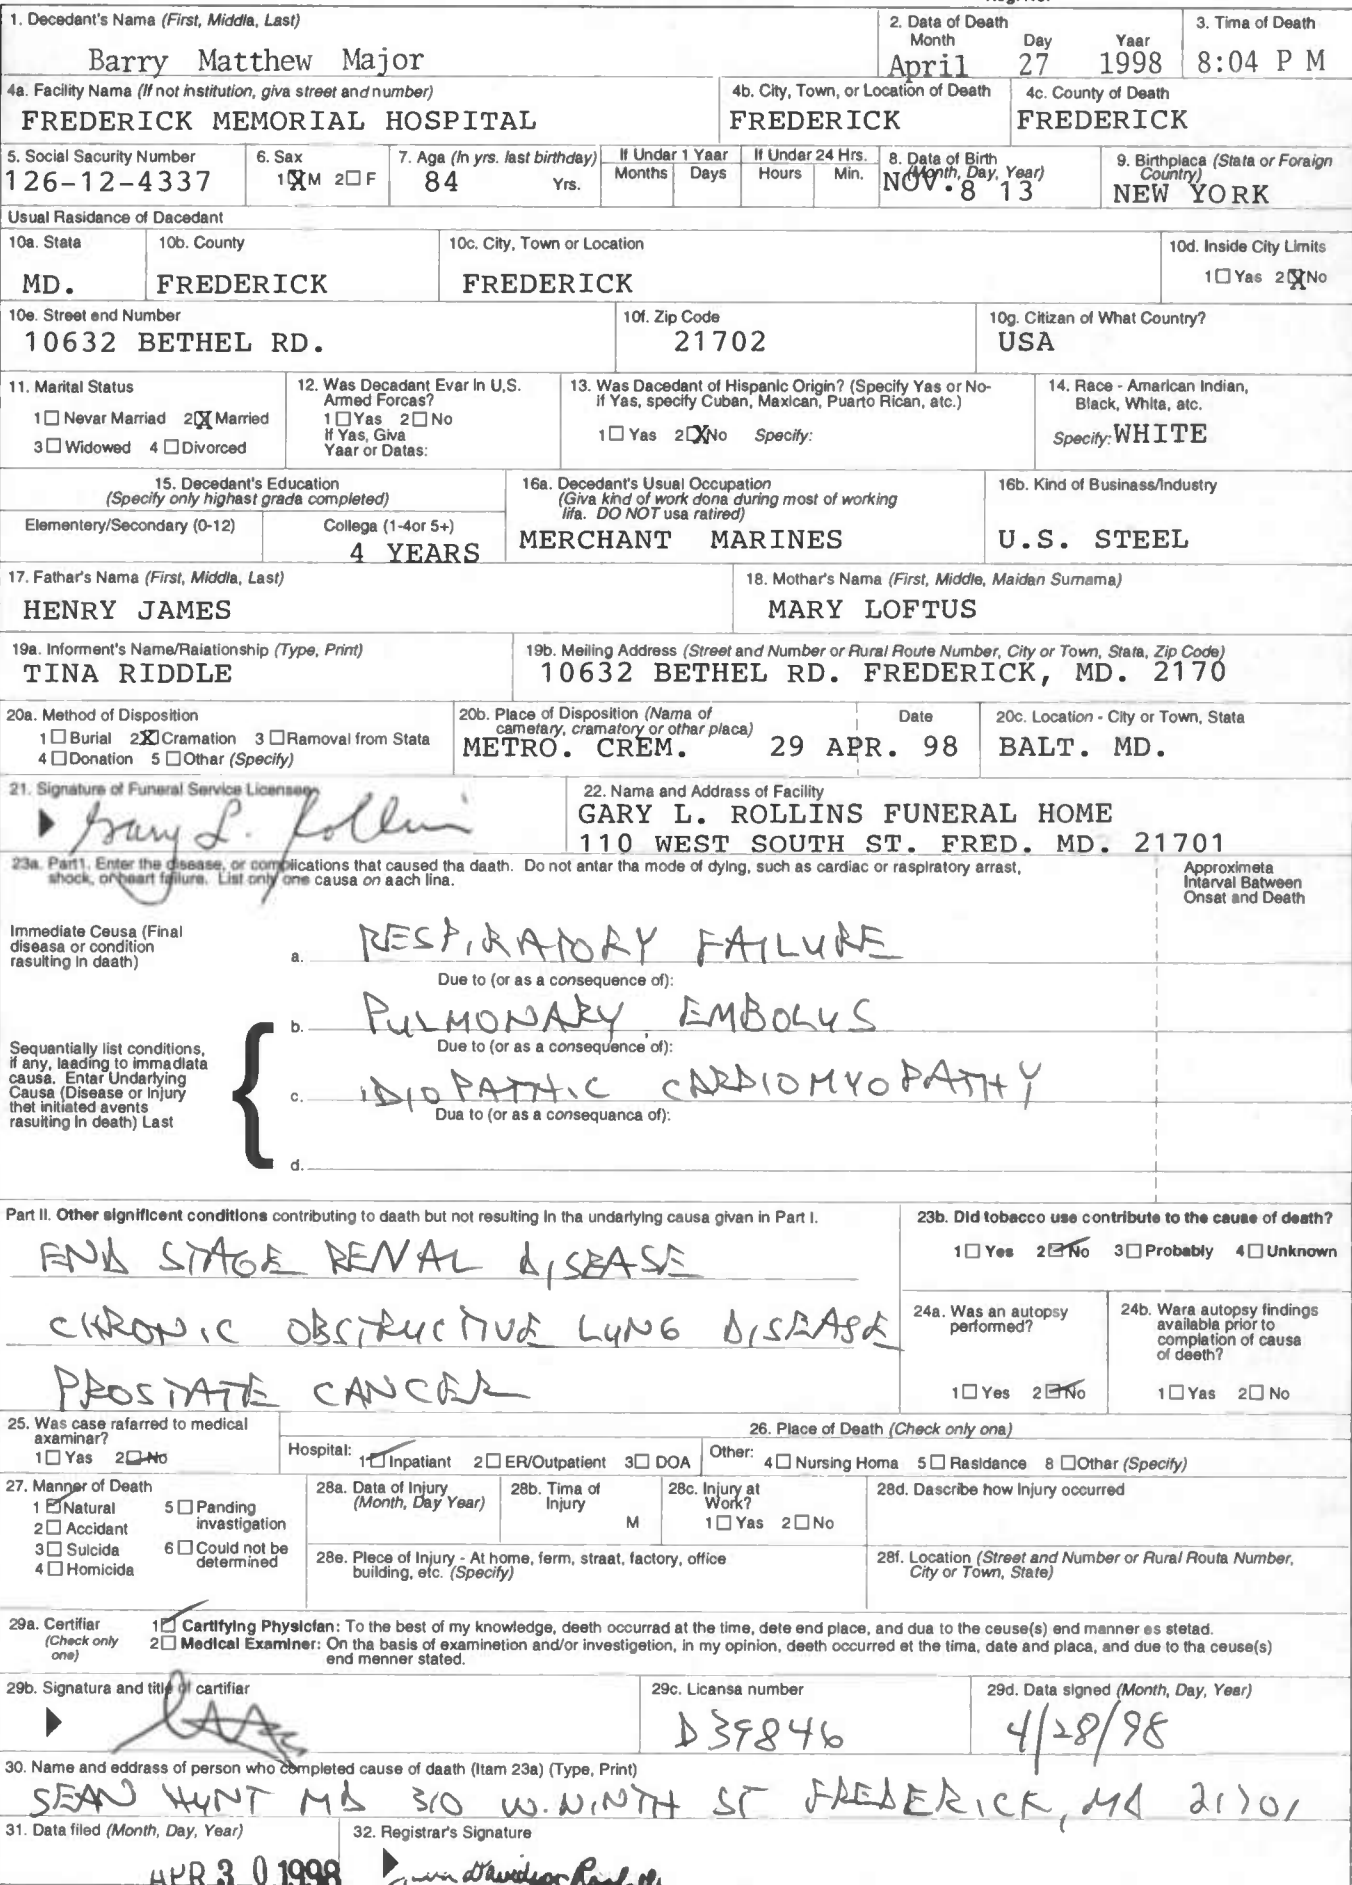 1. Decedant's Name (First, Middla, Last)
Barry Matthew Major
2. Data of Death
Month Day Yaar
April 27 1998
3. Tima of Death
8:04 P M
4a. Facility Nama (If not institution, giva street and number)
FREDERICK MEMORIAL HOSPITAL
4b. City, Town, or Location of Death
FREDERICK
4c. County of Death
FREDERICK
5. Social Sacurity Number
126-12-4337
6. Sax
1☒M 2☐F
7. Aga (In yrs. last birthday)
84 Yrs.
If Under 1 Year
Months Days
If Under 24 Hrs.
Hours Min.
8. Data of Birth
(Month, Day, Year)
NOV.8 13
9. Birthplaca (Stata or Foraign
Country)
NEW YORK
Usual Rasidance of Dacedant
10a. Stata
MD.
10b. County
FREDERICK
10c. City, Town or Location
FREDERICK
10d. Inside City Limits
1☐Yas 2☒No
10e. Street end Number
10632 BETHEL RD.
10f. Zip Code
21702
10g. Citizan of What Country?
USA
11. Marital Status
1☐ Nevar Marriad 2☒ Married
3☐ Widowed 4☐ Divorced
12. Was Decadant Evar In U.S.
Armed Forcas?
1☐Yas 2☐No
If Yas, Giva
Yaar or Datas:
13. Was Dacedant of Hispanic Origin? (Specify Yas or No-
if Yas, specify Cuban, Maxlcan, Puarto Rican, atc.)
1☐ Yas 2☒No Specify:
14. Race - Amarlcan Indian,
Black, Whlta, atc.
Specify: WHITE
15. Decedant's Education
(Specify only highast grada completed)
Elementery/Secondary (0-12)
Collega (1-4or 5+)
4 YEARS
16a. Decedant's Usual Occupation
(Giva kind of work dona during most of working
lifa. DO NOT usa ratired)
MERCHANT MARINES
16b. Kind of Businass/Industry
U.S. STEEL
17. Fathar's Nama (First, Middla, Last)
HENRY JAMES
18. Mothar's Nama (First, Middle, Maidan Surnama)
MARY LOFTUS
19a. Informent's Name/Ralationship (Type, Print)
TINA RIDDLE
19b. Meiling Address (Street and Number or Rural Route Number, City or Town, Stata, Zip Coda)
10632 BETHEL RD. FREDERICK, MD. 2170
20a. Method of Disposition
1☐Burial 2☒Cramation 3☐Ramoval from Stata
4☐Donation 5☐Othar (Specify)
20b. Placa of Disposition (Nama of
camatary, cramatory or othar placa)
Date
METRO. CREM. 29 APR. 98
20c. Location - City or Town, Stata
BALT. MD.
21. Signature of Funeral Service Licensee
Gary L. Rollins
22. Nama and Address of Facility
GARY L. ROLLINS FUNERAL HOME
110 WEST SOUTH ST. FRED. MD. 21701
23a. Part1. Enter the disease, or complications that caused tha daath. Do not antar tha mode of dying, such as cardiac or raspiratory arrast,
shock, or heart failure. List only one causa on aach lina.
Approximeta
Intarval Batween
Onsat and Death
Immediate Ceusa (Final
diseasa or condition
rasulting In daath)
a. RESPIRATORY FAILURE
Due to (or as a consequence of):
b. PULMONARY EMBOLUS
Due to (or as a consequence of):
Sequantially list conditions,
if any, laading to immadlata
causa. Entar Undarlying
Causa (Disease or Injury
thet initiated avents
rasulting In death) Last
c. IDIOPATHIC CARDIOMYOPATHY
Dua to (or as a consequanca of):
d.
Part II. Other significent conditions contributing to daath but not resulting In tha undarlying causa givan in Part I.
END STAGE RENAL DISEASE
CHRONIC OBSTRUCTIVE LUNG DISEASE
PROSTATE CANCER
23b. Did tobacco use contribute to the cause of death?
1☐ Yes 2☑No 3☐Probably 4☐Unknown
24a. Was an autopsy
performed?
1☐Yes 2☑No
24b. Wara autopsy findings
availabla prior to
complation of causa
of deeth?
1☐Yas 2☐ No
25. Was case rafarred to medical
axaminar?
1☐Yas 2☑No
26. Place of Death (Check only ona)
Hospital: 1☑Inpatiant 2☐ER/Outpatient 3☐ DOA
Other: 4☐Nursing Homa 5☐Rasidance 8☐Othar (Specify)
27. Manner of Death
1☑Natural 5☐Panding
invastigation
2☐Accidant
3☐Sulcida 6☐Could not be
determined
4☐Homicida
28a. Data of Injury
(Month, Day Year)
28b. Tima of
Injury
M
28c. Injury at
Work?
1☐Yas 2☐No
28d. Dascribe how Injury occurred
28e. Plece of Injury - At home, ferm, straat, factory, office
building, etc. (Specify)
28f. Location (Street and Number or Rural Routa Number,
City or Town, State)
29a. Certifiar
(Check only
ona)
1☑ Cartifying Physician: To the best of my knowledge, deeth occurrad at the time, dete end place, and dua to the ceuse(s) end manner es stetad.
2☐ Medical Examiner: On tha basis of examinetion and/or investigetion, in my opinion, deeth occurred et the tima, date and placa, and due to tha ceuse(s)
end menner stated.
29b. Signatura and title of cartifiar
29c. Licansa number
D39846
29d. Data signed (Month, Day, Year)
4/28/98
30. Name and eddrass of parson who completed cause of daath (Itam 23a) (Type, Print)
SEAN HUNT MD 310 W. NINTH ST FREDERICK, MD 21701
31. Data filed (Month, Day, Year)
APR 30 1998
32. Registrar's Signature